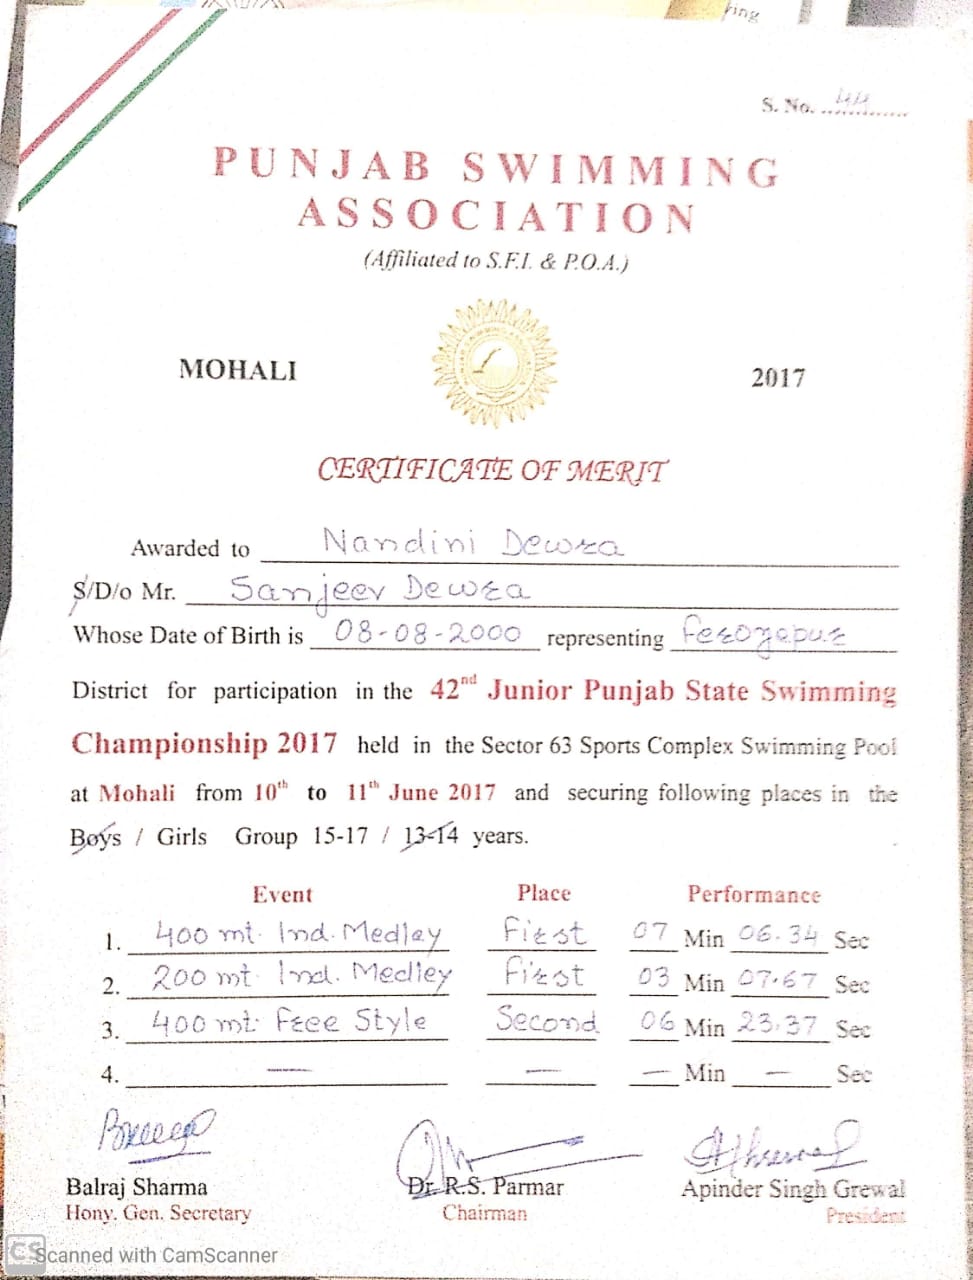 ring
S. No. 44
PUNJAB SWIMMING
ASSOCIATION
(Affiliated to S.F.I. & P.O.A.)
MOHALI 2017
CERTIFICATE OF MERIT
Awarded to Nandini Dewra
S/D/o Mr. Sanjeev Dewra
Whose Date of Birth is 08-08-2000 representing Ferozepur
District for participation in the 42nd Junior Punjab State Swimming
Championship 2017 held in the Sector 63 Sports Complex Swimming Pool
at Mohali from 10th to 11th June 2017 and securing following places in the
Boys / Girls Group 15-17 / 13-14 years.
Event Place Performance
1. 400 mt. Ind. Medley First 07 Min 06.34 Sec
2. 200 mt. Ind. Medley First 03 Min 07.67 Sec
3. 400 mt. Free Style Second 06 Min 23.37 Sec
4. — — — Min — Sec
Balraj Sharma Dr. R.S. Parmar Apinder Singh Grewal
Hony. Gen. Secretary Chairman President
CS Scanned with CamScanner